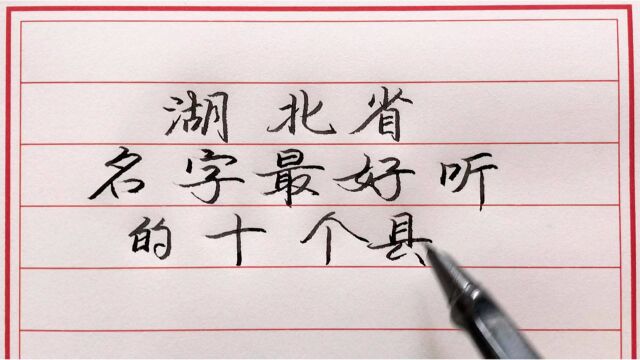 湖北省
名字最好听
的十个县